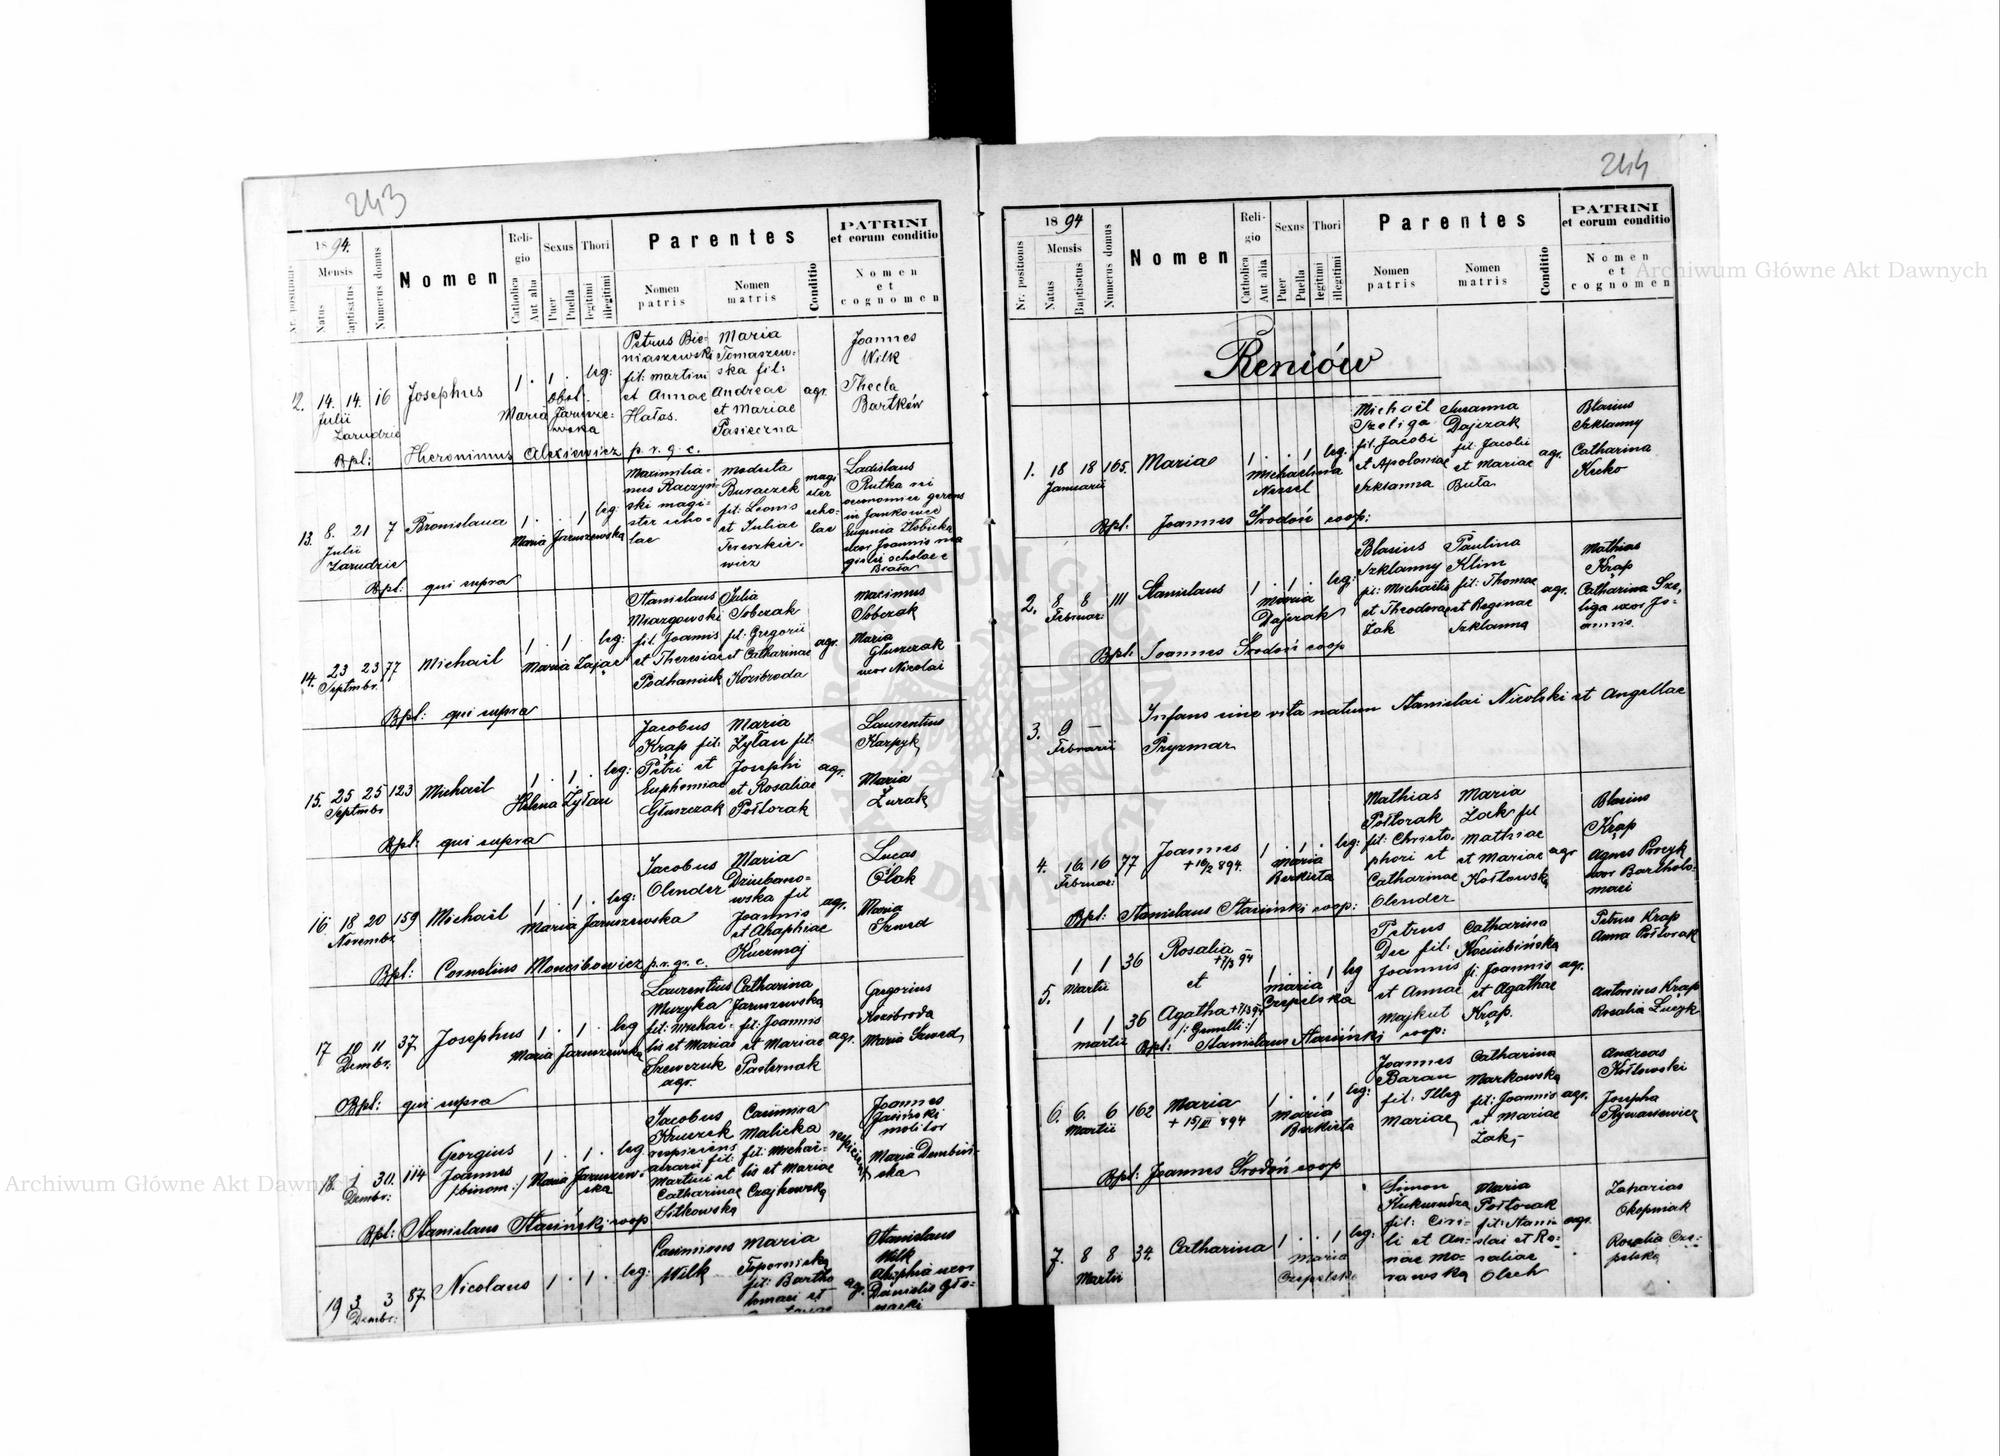 243
1894.
Nr. positionis
Mensis
Natus
Baptisatus
Numerus domus
Nomen
Religio
Catholica
Aut alia
Sexus
Puer
Puella
Thori
legitimi
illegitimi
Parentes
Nomen patris
Nomen matris
Conditio
PATRINI
et eorum conditio
Nomen
et
cognomen
12. 14. 14. 16 Josephus 1 . 1 . leg:
Julii
Zarudzie
Obst.
Maria Jaruszewska
Petrus Bieniaszewski
fil: Martini
et Annae
Hałas.
Maria
Tomaszewska fil:
Andreae
et Mariae
Pasieczna
agr.
Joannes
Wilk
Thecla
Bartków
Bpl: Hieronimus Alexiewicz p. r. g. c.
13. 8. 21 7 Bronislava 1 . . 1 leg:
Julii
Zarudzie
Maria Jaruszewska
Maximilianus Raczyński magister scholae
Modesta
Buraczek
fil: Leonis
et Juliae
Tereszkiewicz
magister scholae
Ladislaus
Rutka rei
oeconomice gerens
in Jankowce
Eugenia Złobicka
uxor Joannis magistri scholae e
Biała
Bpl: qui supra
14. 23 23 77 Michaël 1 . 1 . leg:
Septmbr.
Maria Zając
Stanislaus
Mrazgowski
fil. Joannis
et Theresiae
Podhaniuk
Julia
Sobczak
fil: Gregorii
et Catharinae
Kozibroda
agr.
Maximus
Sobczak
Maria
Głuszczak
uxor Nicolai
Bpl: qui supra
15. 25 25 123 Michaël 1 . 1 . leg:
Septmbr
Helena Żyłan
Jacobus
Krąp fil:
Petri et
Euphemiae
Głuszczak
Maria
Żyłan fil:
Josephi
et Rosaliae
Półtorak
agr.
Laurentius
Karpyk
Maria
Żurak
Bpl: qui supra
16 18 20 159 Michaël 1 . 1 . leg:
Novembr.
Maria Jaruszewska
Jacobus
Olender
Maria
Dziubanowska fil
Joannis
et Ahaphiae
Kuczmaj
agr.
Lucas
Ślak
Maria
Szwed
Bpl: Cornelius Moncibowicz p. r. gr. c.
17 10 11 37. Josephus 1 . 1 . leg
Dembr.
Maria Jaruszewska
Laurentius
Muzyka
fil: Michaëlis et Mariae
Szewczuk
agr.
Catharina
Jaruszewska
fil: Joannis
et Mariae
Pasternak
agr.
Gregorius
Kozibroda
Maria Szwed
Bpl: qui supra
18. 1 30. 114 Georgius
Joannes
/:binom:/
1 . 1 . leg
Dembr:
Maria Jaruszewska
Jacobus
Kruczek
respiciens
aerarii fil:
Martini et
Catharinae
Sitkowska
Casimira
Malicka
fil: Michaëlis et Mariae
Czajkowska
respiciens
Joannes
Jasiński
molitor
Maria Dembińska
Bpl: Stanislaus Stasiński coop
19 3 3 87. Nicolaus 1 . 1 . leg:
Dembr:
Casimirus
Wilk
Maria
Topornicka
fil: Bartholomaei et
agr.
Stanislaus
Wilk
Ahaphia uxor
Danielis
244
1894
Nr. positionis
Mensis
Natus
Baptisatus
Numerus domus
Nomen
Religio
Catholica
Aut alia
Sexus
Puer
Puella
Thori
legitimi
illegitimi
Parentes
Nomen patris
Nomen matris
Conditio
PATRINI
et eorum conditio
Nomen
et
cognomen
Reniów
1. 18 18 165. Maria 1 . . 1 leg.
Januarii
Michaelina
Nessel
Michaël
Szeliga
fil. Jacobi
et Apoloniae
Szklanna
Susanna
Dajczak
fil: Jacobi
et Mariae
Buła
agr.
Blasius
Szklanny
Catharina
Kećko
Bpl: Joannes Środoń coop:
2. 8 8 111 Stanislaus 1 . 1 . leg:
Februar:
Maria
Dajczak
Blasius
Szklanny
fil: Michaëlis
et Theodorae
Żak
Paulina
Klim
fil: Thomae
et Reginae
Szklanna
agr.
Mathias
Krąp
Catharina Szeliga uxor Joannis
Bpl: Joannes Środoń coop
3. 9 –
Februarii
Infans sine vita natum Stanislai Nicolski et Angellae
Pryzmar
4. 16. 16 77 Joannes 1 . 1 . leg:
+ 16/2 894.
Februar:
Maria
Berkieta
Mathias
Półtorak
fil: Christophori et
Catharinae
Olender
Maria
Żak fil
Mathiae
et Mariae
Kozłowska
agr
Blasius
Krąp
Agnes Porczyk
uxor Bartholomaei
Bpl: Stanislaus Stasiński coop:
5. 1 1 36 Rosalia
+ 7/3 94
Martii
et
1 1 36 Agatha + 7/3 94
/:Gemelli:/
Martii
1 . . 1 leg
Maria
Czepelska
Petrus
Dec fil:
Joannis
et Annae
Majkut
Catharina
Kociubińska
fi: Joannis
et Agathae
Krąp.
agr.
Petrus Krąp
Anna Półtorak
Antonius Krąp
Rosalia Łuczyk
Bpl: Stanislaus Stasiński coop:
6. 6. 6 162 Maria 1 . . 1 leg:
+ 15/III 894
Martii
Maria
Berkieta
Joannes
Baran
fil: Illeg
Mariae
Catharina
Markowska
fil: Joannis
et Mariae
Żak
agr.
Andreas
Kozłowski
Josepha
Rywasiewicz
Bpl: Joannes Środoń coop
7. 8 8 34. Catharina 1 . . 1 leg:
Martii
Maria
Czepelska
Simon
Kukurudza
fil: Cirili et Annae Morawska
Maria
Półtorak
fil: Stanislai et Rosaliae
Olech
agr.
Zacharias
Okopniak
Rosalia Czepelska
Archiwum Główne Akt Dawnych
Archiwum Główne Akt Dawnych